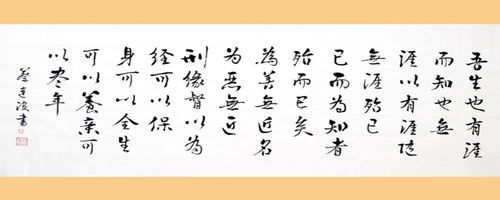 吾生也有涯
而知也無
涯以有涯随
無涯殆已
已而為知者
殆而已矣
為善無近名
為惡無近
刑緣督以為
经可以保
身可以全生
可以養亲可
以盡年
蔡書